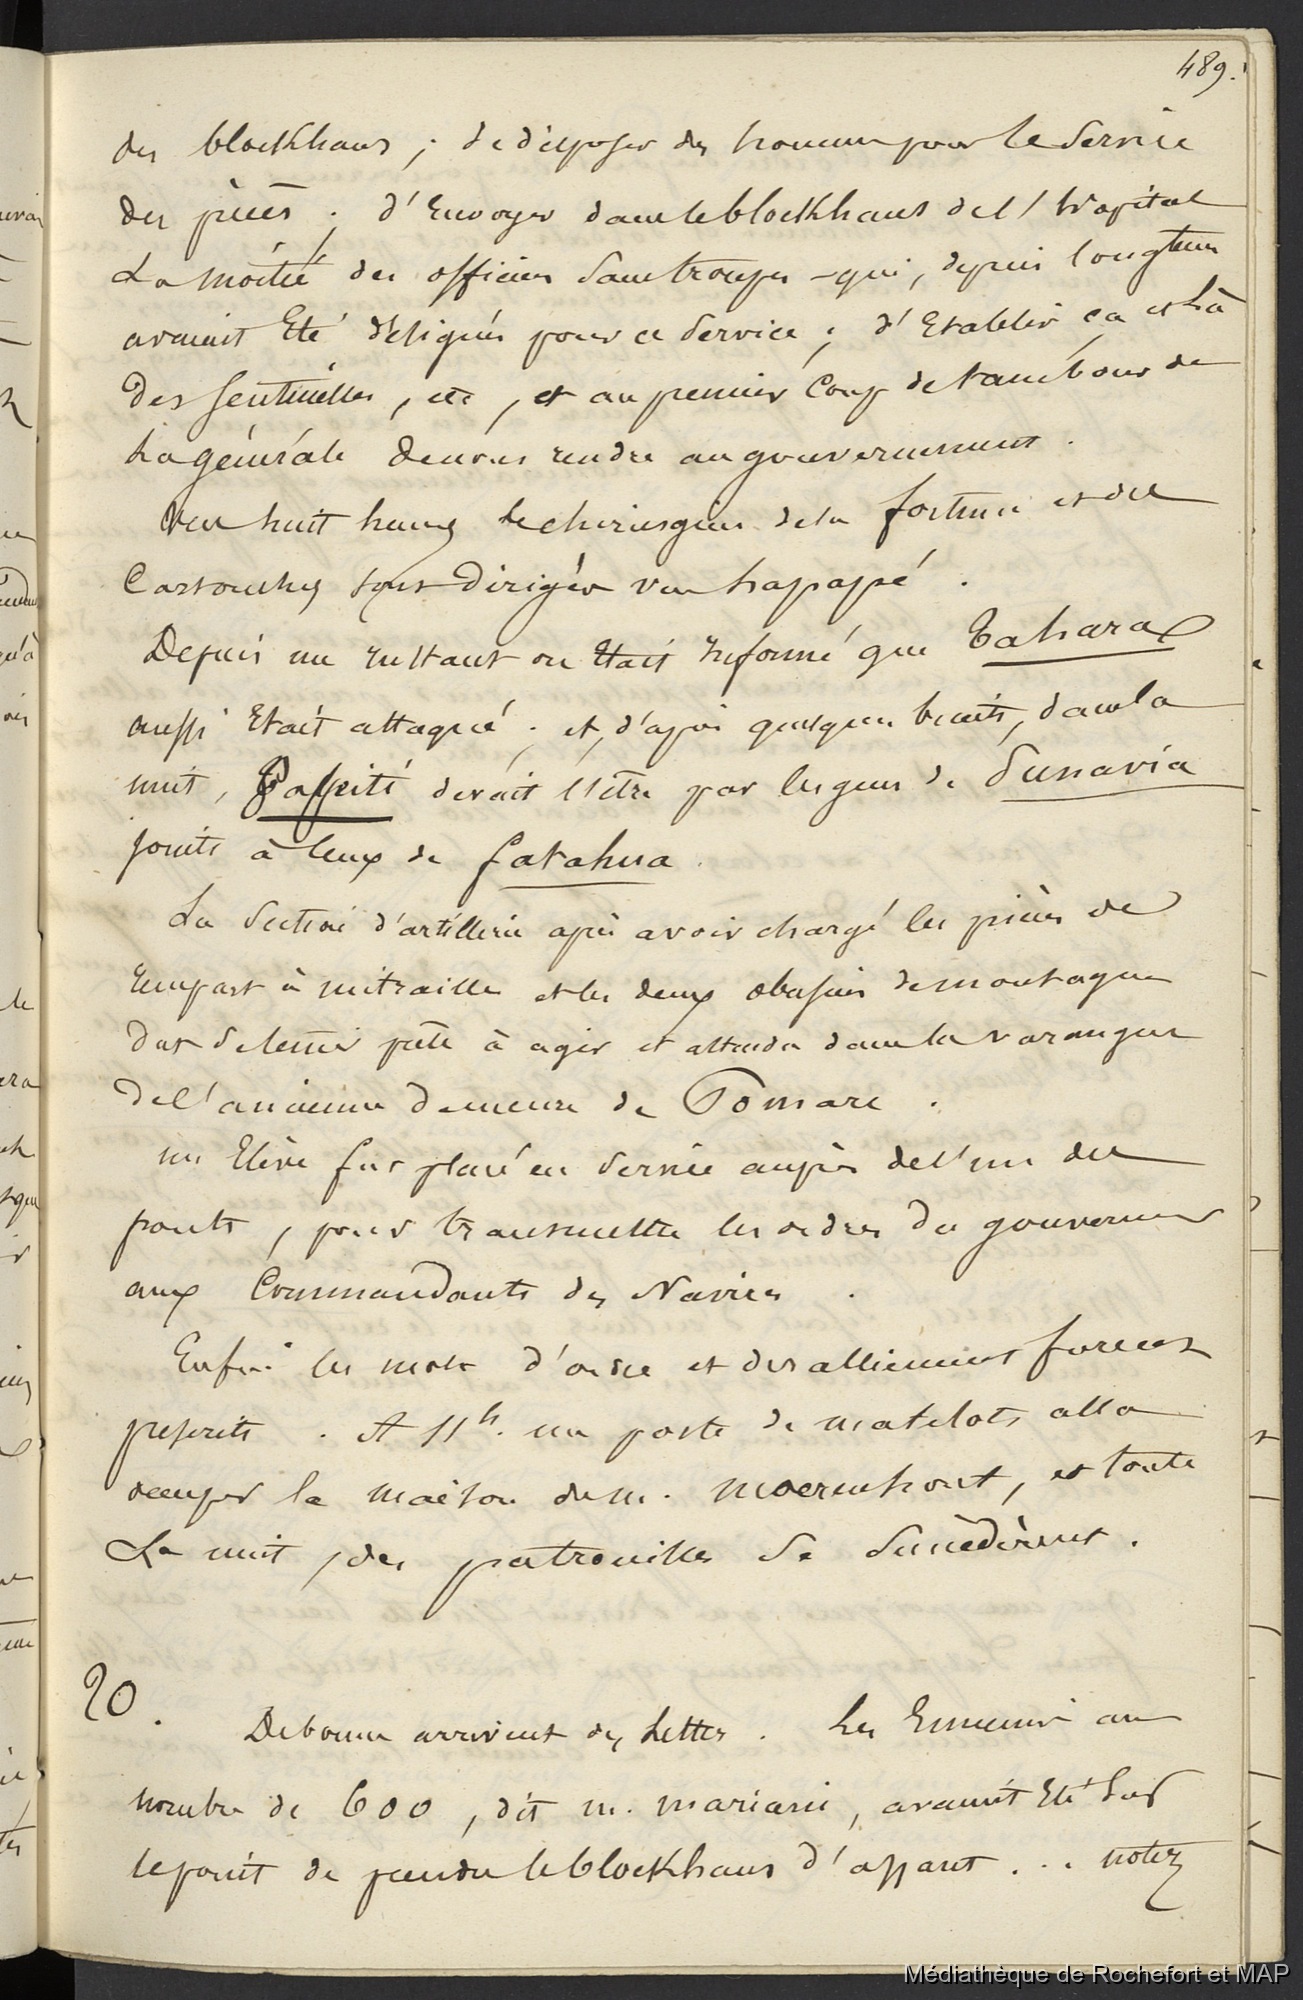 489.
des blockhaus ; de disposer des hommes pour le service
des pièces ; d'Envoyer dans le blockhaus de l'hôpital
La moitié des officiers sans troupes - qui, depuis longtems
avaient Eté désignés pour ce service ; d'Etablir ça et là
Des sentinelles, etc, et au premier coup de tambour de
La générale de nous rendre au gouvernement.
Vers huit heures le chirurgien de la fortune et des
Cartouches sont dirigés vers hapapé.
Depuis un instant on Etait informé que Taharaa
aussi Etait attaqué ; et, d'après quelques bruits, dans la
nuit, Papeiti devait l'être par les gens de Punavia
joints à ceux de fatahua.
La Section d'artillerie après avoir chargé les pièces de
rempart à mitraille et les deux obusiers de montagne
dut se tenir prête à agir et attendre dans la varangue
de l'ancienne demeure de Pomare.
un Elève fut placé en service auprès de l'un des
ponts, pour transmettre les ordres du gouverneur
aux Commandants des Navires.
Enfin les mots d'ordre et de ralliement furent
prescrits. A 11h. un poste de matelots alla
occuper la maison de m. moerenhout, et toute
La nuit, des patrouilles se succédèrent.
20.
De bonne arrivent des Lettres. Les Ennemis au
nombre de 600, dit m. mariani, avaient Eté Sur
le point de prendre le blockhaus d'assaut... notez
Médiathèque de Rochefort et MAP